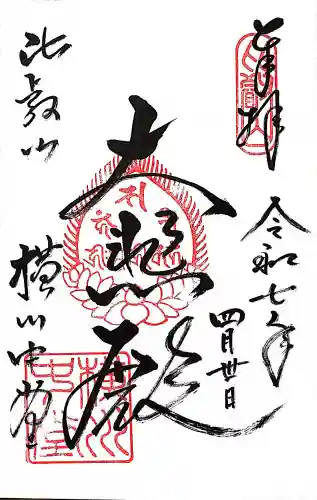 奉拝
令和七年
四月廿日
大悲殿
比叡山
横川中堂